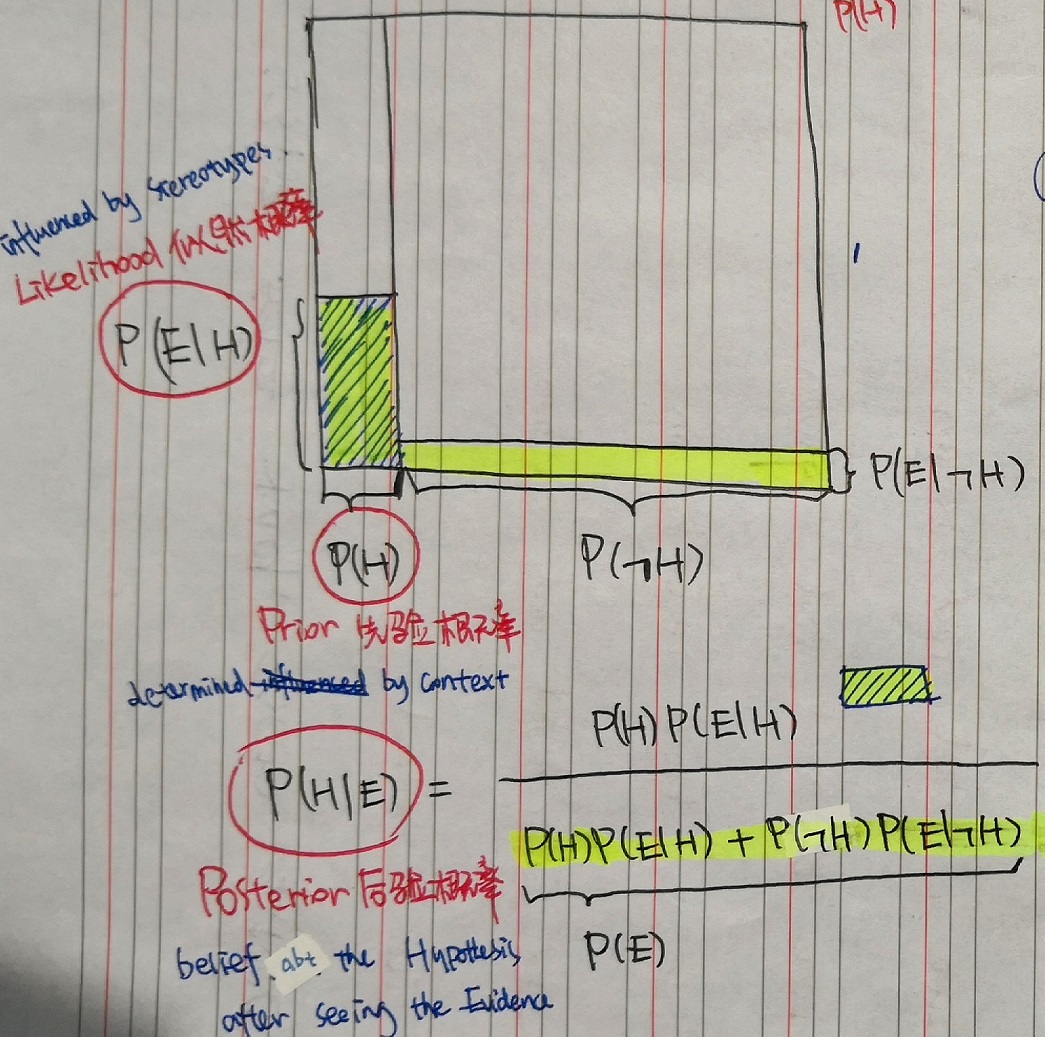 P(H)
influenced by stereotypes.
Likelihood 似然概率
P(E|H)
P(E|¬H)
P(H)
P(¬H)
Prior 先验概率
determined by context
P(H) P(E|H)
P(H|E) =
P(H)P(E|H) + P(¬H)P(E|¬H)
Posterior 后验概率
P(E)
belief abt the Hypothesis
after seeing the Evidence